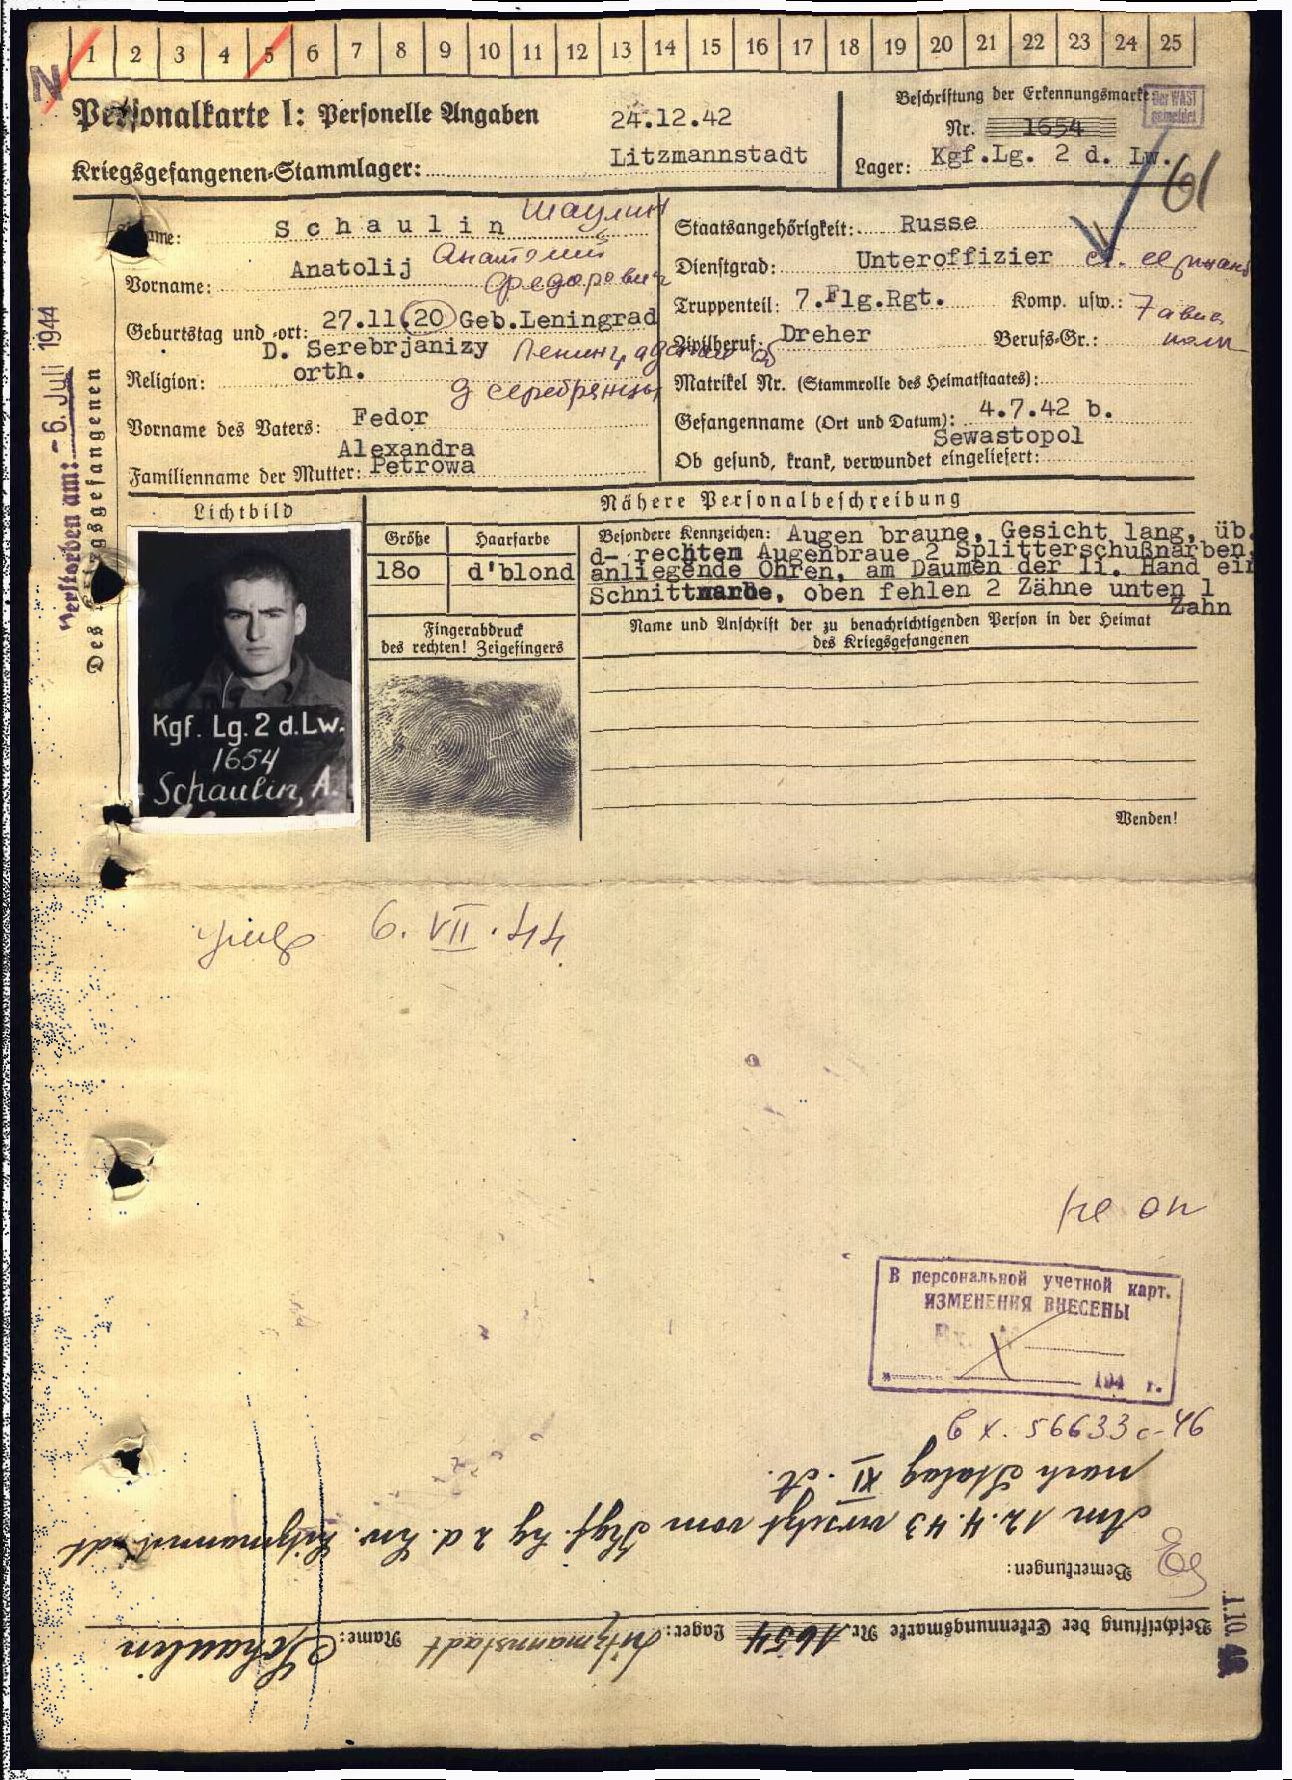 1 2 3 4 5 6 7 8 9 10 11 12 13 14 15 16 17 18 19 20 21 22 23 24 25
N
Personalkarte I: Personelle Angaben
24.12.42
Beschriftung der Erkennungsmarke
Der WASt gemeldet
Nr. 1654
Kriegsgefangenen-Stammlager: Litzmannstadt
Lager: Kgf.Lg. 2 d. Lw.
61
name: Schaulin Шаулин
Vorname: Anatolij Анатолий
Федорович
Geburtstag und -ort: 27.11.20 Geb.Leningrad
D. Serebrjanizy
Religion: orth.
д серебрянцы
Vorname des Vaters: Fedor
Alexandra
Familienname der Mutter: Petrowa
Staatsangehörigkeit: Russe
Dienstgrad: Unteroffizier
Truppenteil: 7.Flg.Rgt. Komp. usw.: 7 авиа
полк
Zivilberuf: Dreher Berufs-Gr.:
Matrikel Nr. (Stammrolle des Heimatstaates):
Gefangenname (Ort und Datum): 4.7.42 b.
Sewastopol
Ob gesund, krank, verwundet eingeliefert:
verstorben am: - 6. Juli 1944
Des gsgefangenen
Lichtbild
Nähere Personalbeschreibung
Größe Haarfarbe
180 d'blond
Besondere Kennzeichen: Augen braune, Gesicht lang, üb.
d- rechten Augenbraue 2 Splitterschußnarben,
anliegende Ohren, am Daumen der li. Hand ein
Schnittnarbe, oben fehlen 2 Zähne unten 1
Zahn
Kgf. Lg. 2 d. Lw.
1654
Schaulin, A.
Fingerabdruck
des rechten! Zeigefingers
Name und Anschrift der zu benachrichtigenden Person in der Heimat
des Kriegsgefangenen
Wenden!
умер 6. VII. 44
не оп
В персональной учетной карт.
ИЗМЕНЕНИЯ ВНЕСЕНЫ
194 г.
Вх. 56633с-46
Beschriftung der Erkennungsmarke Nr. 1654 Lager: Litzmannstadt Name: Schaulin
Bemerkungen:
Am 12.4.43 versetzt vom Kgf. Lg 2 d. Lw. Litzmannstadt
nach Stalag XI. A.